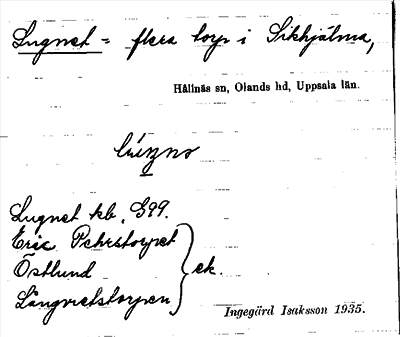 Lugnet = flera torp i Sikhjälma,
Hållnäs sn, Olands hd, Uppsala län.
Lugnet kb. G99.
Eric Pehrstorpet
Östlund
Långvretstorpen
ek.
Ingegärd Isaksson 1935.